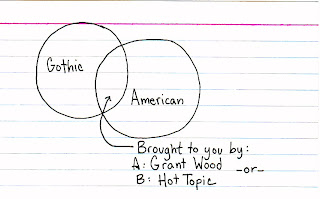 Gothic
American
Brought to you by:
A: Grant Wood -or-
B: Hot Topic